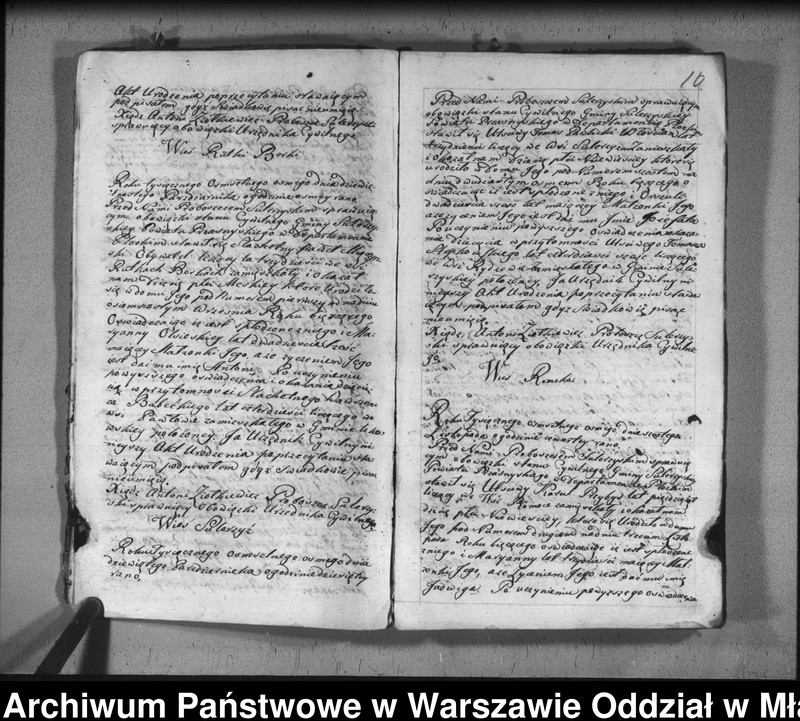 Akt Urodzenia poprzeczytaniu stawaiącym
podpisałem gdyż Swiadkowie pisac nieumieią
Xiądz Antoni Ziołkiewicz Proboszcz Sulerzyski
sprawuiący obowiązki Urzędnika Cywilnego
Wieś Rątki Borki
Roku tysiącznego osmsetnego osmego dnia dziewią
tego Pazdziernika ogodzinie osmy rano,
Przed Nami Proboszczem Sulerzyskim sprawuią
cym obowiązki stanu Cywilnego Gminy Sulerzy
skiey Powiatu Prasnyskiego w Departamencie
Płockim stawił się Szlachetny
ski Obywatel liczący lat trzydzieści we wsi
Rątkach Borkach zamieszkały i okazał
nam Dziecię płci Męskiey które urodziło
się w domu Jego pod Numerem pierwszym na dniu
osiemnastym Września Roku bieżącego
Oswiadczaiąc iż iest spłodzone z niego i Ma
ryanny lat dwadzieścia sześć
maiący Małżonki Jego, a że życzeniem Jego
iest dać mu imię Antoni. Po uczynieniu
powyższego oswiadczenia i okazania dziecię
cia w przytomnosci Szlachetnego Wawrzeń
ca Babeckiego lat czterdzieści liczącego we
wsi Pawłowie zamieszkałego w Gminie
wskiey położoney. Ja Urzędnik Cywilny ni
nieyszy Akt Urodzenia poprzeczytaniu sta
waiącym podpisałem gdyż Swiadkowie pisac
nieumieią.
Xiądz Antoni Ziołkiewicz Proboszcz Sulerzy
ski sprawuiący obowiązki Urzędnika Cywilnego
Wieś Sulerzyż
Roku Tysiącznego osmsetnego osmego dnia
dziewiątego Pazdziernika o godzinie dziewiąty
rano,
10
Przed Nami Proboszczem Sulerzyskim sprawuiącym
obowiązki stanu Cywilnego Gminy Sulerzyskiey
Powiatu Prasnyskiego w Departamencie Płockim
stawił się Utsciwy Tomasz lat
trzydzieści liczący we wsi Sulerzyżu zamieszkały
i okazał nam Dziecię płci Niewieściey które się
urodziło w Domu Jego pod Numerem szostem na
dniu dwudziestym osmem Roku bieżącego
oswiadczaiąc iż iest spłodzone z niego i Urszuli
dwadzieścia sześć lat maiący Małżonki Jego
a że życzeniem Jego iest dać mu Jmie Jozefata
Po uczynieniu powyższego oswiadczenia i okaza
nia Dziecięcia w przytomnosci Utsciwego Tomasza
lat czterdzieści sześć liczącego
we wsi zamieszkałego w Gminie Sule
rzyskiey położoney, Ja Urzędnik Cywilny ni
nieyszy Akt Urodzenia poprzeczytaniu stawa
iącym podpisałem gdyż Swiadkowie pisać
nieumieią.
Xiądz Antoni Ziołkiewicz Proboszcz Sulerzy
ski sprawuiący obowiązki Urzędnika Cywilne
go.
Wieś Romoka
Roku Tysiącznego osmsetnego osmego dnia szostego
Listopada ogodzinie czwarty rano
Przed Nami Proboszczem Sulerzyskim sprawuią
cym obowiązki stanu Cywilnego Gminy Sulerzyskiy
Powiatu Prasnyskiego w Departamencie Płockim
stawił się Utsciwy Karol Przybysz lat pięćdziesiąt
liczący we Wsi Romoce zamieszkały i okazał nam
dziecię płci Niewieściey, które się Urodziło w domu
Jego pod Numerem drugiem na dniu trzecim Listo
pada Roku bieżącego oswiadczaiąc iż iest spłodzone
z niego i Maryanny lat trzydzieści maiący Mał
żonki Jego, a że życzeniem Jego iest dać mu imię
Jadwiga. Po uczynieniu powyższego oswiadcze
Archiwum Państwowe w Warszawie Oddział w Mła